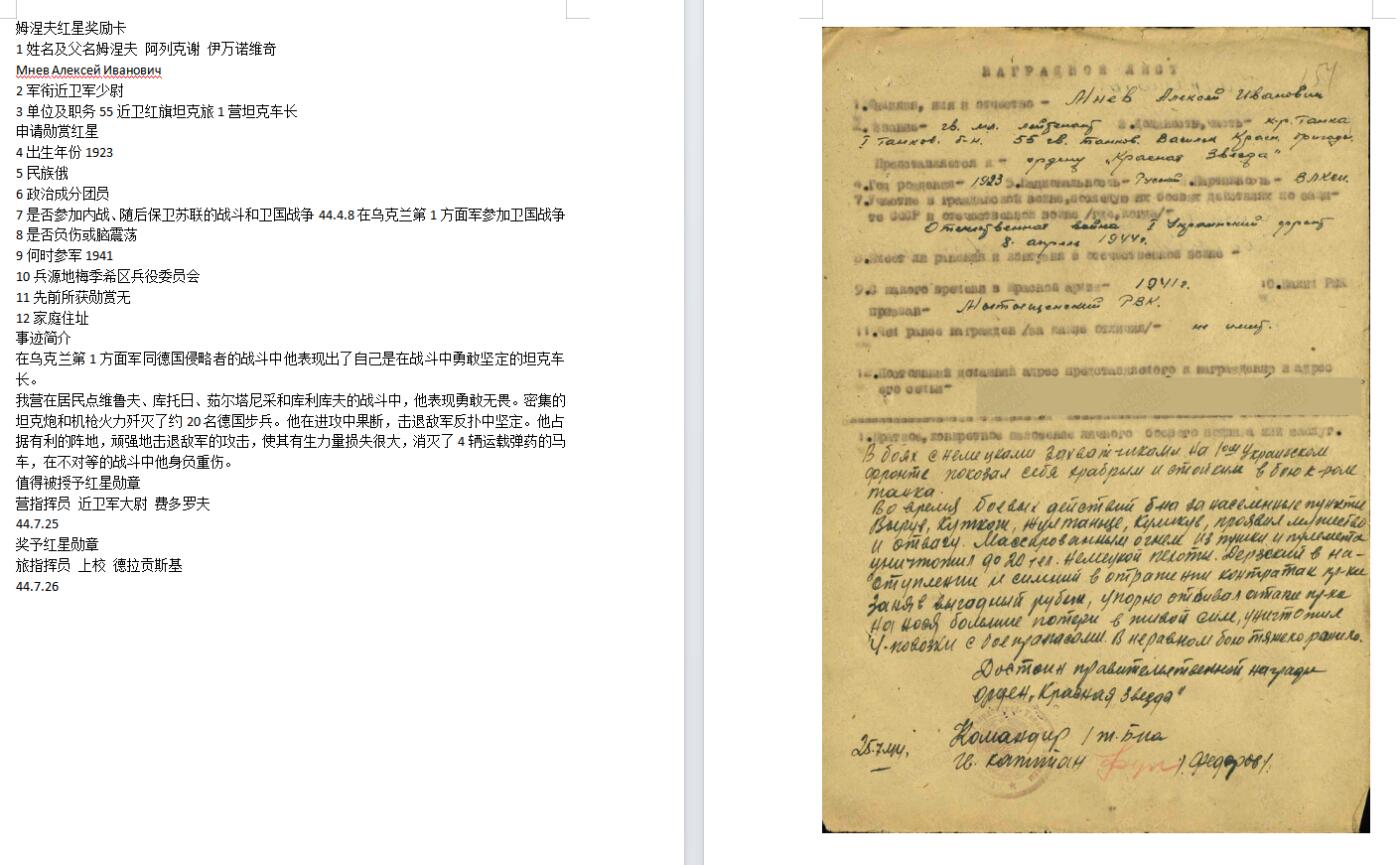 姆涅夫红星奖励卡
1 姓名及父名姆涅夫 阿列克谢 伊万诺维奇
Мнев Алексей Иванович
2 军衔近卫军少尉
3 单位及职务 55 近卫红旗坦克旅 1 营坦克车长
申请勋赏红星
4 出生年份 1923
5 民族俄
6 政治成分团员
7 是否参加内战、随后保卫苏联的战斗和卫国战争 44.4.8 在乌克兰第 1 方面军参加卫国战争
8 是否负伤或脑震荡
9 何时参军 1941
10 兵源地梅季希区兵役委员会
11 先前所获勋赏无
12 家庭住址
事迹简介
在乌克兰第 1 方面军同德国侵略者的战斗中他表现出了自己是在战斗中勇敢坚定的坦克车
长。
我营在居民点维鲁夫、库托日、茹尔塔尼采和库利库夫的战斗中，他表现勇敢无畏。密集的
坦克炮和机枪火力歼灭了约 20 名德国步兵。他在进攻中果断，击退敌军反扑中坚定。他占
据有利的阵地，顽强地击退敌军的攻击，使其有生力量损失很大，消灭了 4 辆运载弹药的马
车，在不对等的战斗中他身负重伤。
值得被授予红星勋章
营指挥员 近卫军大尉 费多罗夫
44.7.25
奖予红星勋章
旅指挥员 上校 德拉贡斯基
44.7.26
НАГРАДНОЙ ЛИСТ
1.Фамилия, имя и отчество - Мнев Алексей Иванович
2.Звание- гв. мл. лейтенант 3.Должность,часть- к-р. танка
I танков. б-н. 55 гв. танков. Васильк Красн. бригады.
Представляется к - ордену „Красная Звезда"
4.Год рождения- 1923 5.Национальность- Русский 6.Партийность- ВЛКСМ.
7.Участие в гражданской войне,последующих боевых действиях по защи-
те СССР и отечественной войне /где,когда/-
Отечественная война I Украинский фронт
8. апреля 1944г.
8.Имеет ли ранения и контузии в отечественной войне -
9.С какого времени в Красной армии- 1941г. 10.Каким РВК
призван- РВК.
11.Чем ранее награжден /за какие отличия/- не имеет.
12.Постоянный домашний адрес представляемого к награждению и адрес
его семьи-
1.Краткое,конкретное изложение личного боевого подвига или заслуг.
В боях с немецкими захватчиками на 1ом Украинском
фронте показал себя храбрым и стойким в бою к-ром
танка.
Во время боевых действий б-на за населенные пункты
Вырув, Куткож, Жултаньце, Куликув, проявил мужество
и отвагу. Массированным огнем из пушки и пулемета
уничтожил до 20 чел. немецкой пехоты. Дерзский в на-
ступлении и сильный в отражении контратак пр-ка
Заняв выгодный рубеж, упорно отбивал атаки пр-ка
нанося большие потери в живой силе, уничтожил
4-повозки с боеприпасами. В неравном бою тяжело ранило.
Достоин правительственной награды
орден „Красная Звезда"
Командир 1 т. б-на
25.7.44. гв. капитан /Федоров/.